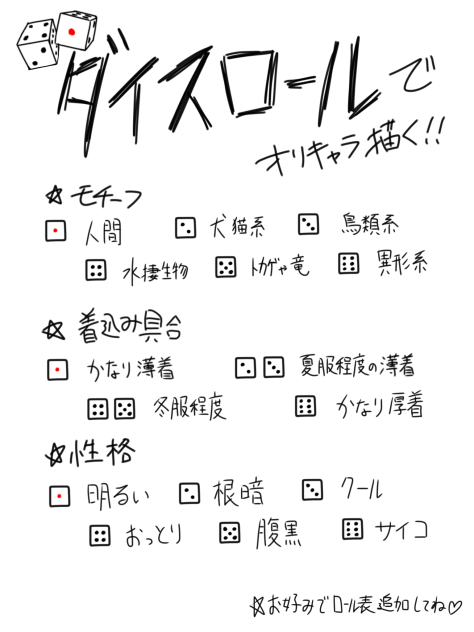 ダイスロールで
オリキャラ描く!!
☆モチーフ
⚀ 人間 ⚁ 犬猫系 ⚂ 鳥類系
⚃ 水棲生物 ⚄ トカゲや竜 ⚅ 異形系
☆着込み具合
⚀ かなり薄着 ⚁⚂ 夏服程度の薄着
⚃⚄ 冬服程度 ⚅ かなり厚着
☆性格
⚀ 明るい ⚁ 根暗 ⚂ クール
⚃ おっとり ⚄ 腹黒 ⚅ サイコ
☆お好みでロール表追加してね♡